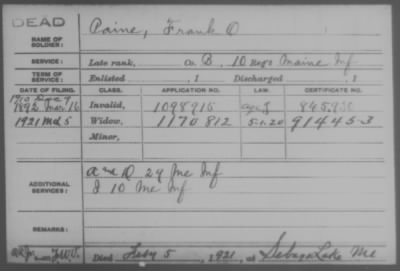 DEAD
NAME OF SOLDIER: Paine, Frank O
SERVICE: Late rank, Co B. 10 Reg't Maine Inf
TERM OF SERVICE: Enlisted , 1 Discharged , 1
DATE OF FILING. CLASS. APPLICATION NO. LAW. CERTIFICATE NO.
1892 Mar 16 Invalid, 1098915
1921 5 Widow, 1170812 5-1-20 914453
Minor,
ADDITIONAL SERVICES: D 29 Me Inf
I 10 Me Inf
REMARKS:
Died Feby 5, 1921, at Sebago Lake Me